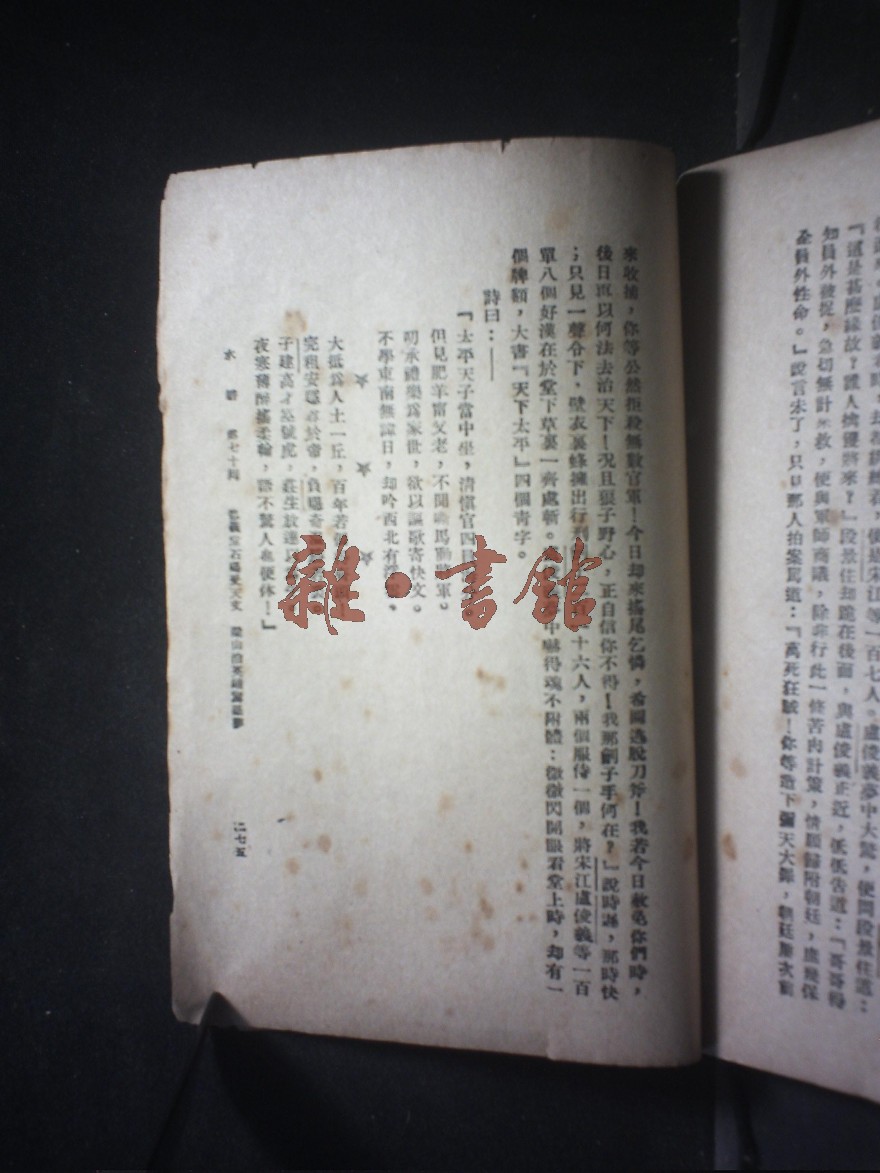 『這是甚麼緣故？誰人擒獲將來？』段景住却跪在後面，與盧俊義正近，低低告道：『哥哥得
知員外被捉，急切無計來救，便與軍師商議，除非行此一條苦肉計策，情願歸附朝廷，庶幾保
全員外性命。』說言未了，只見那人拍案罵道：『萬死狂賊！你等造下彌天大罪，朝廷屢次前
來收捕，你等公然拒殺無數官軍！今日却來搖尾乞憐，希圖逃脫刀斧！我若今日赦免你們時，
後日再以何法去治天下！況且狼子野心，正自信你不得！我那劊子手何在？』說時遲，那時快
；只見一聲令下，壁衣裏蜂擁出行刑 十六人，兩個服侍一個，將宋江盧俊義等一百
單八個好漢在於堂下草裏一齊處斬。 中嚇得魂不附體；微微閃開眼看堂上時，却有一
個牌額，大書『天下太平』四個青字。
詩曰：——
『太平天子當中坐，清愼官四
但見肥羊甯父老，不聞 馬動將軍。
明承禮樂爲家世，欲以謳歌寄快文。
不學東南無諱日，却吟西北有浮
☆ ☆ ☆
大抵爲人土一丘，百年若
完租安穩尊於帝，負曝奇
子建高才空號虎，莊生放達
夜寒薄醉搖柔翰，語不驚人也便休！』
水滸 第七十回 忠義堂石碣受天文 梁山泊英雄驚惡夢
二七五
雜·書館